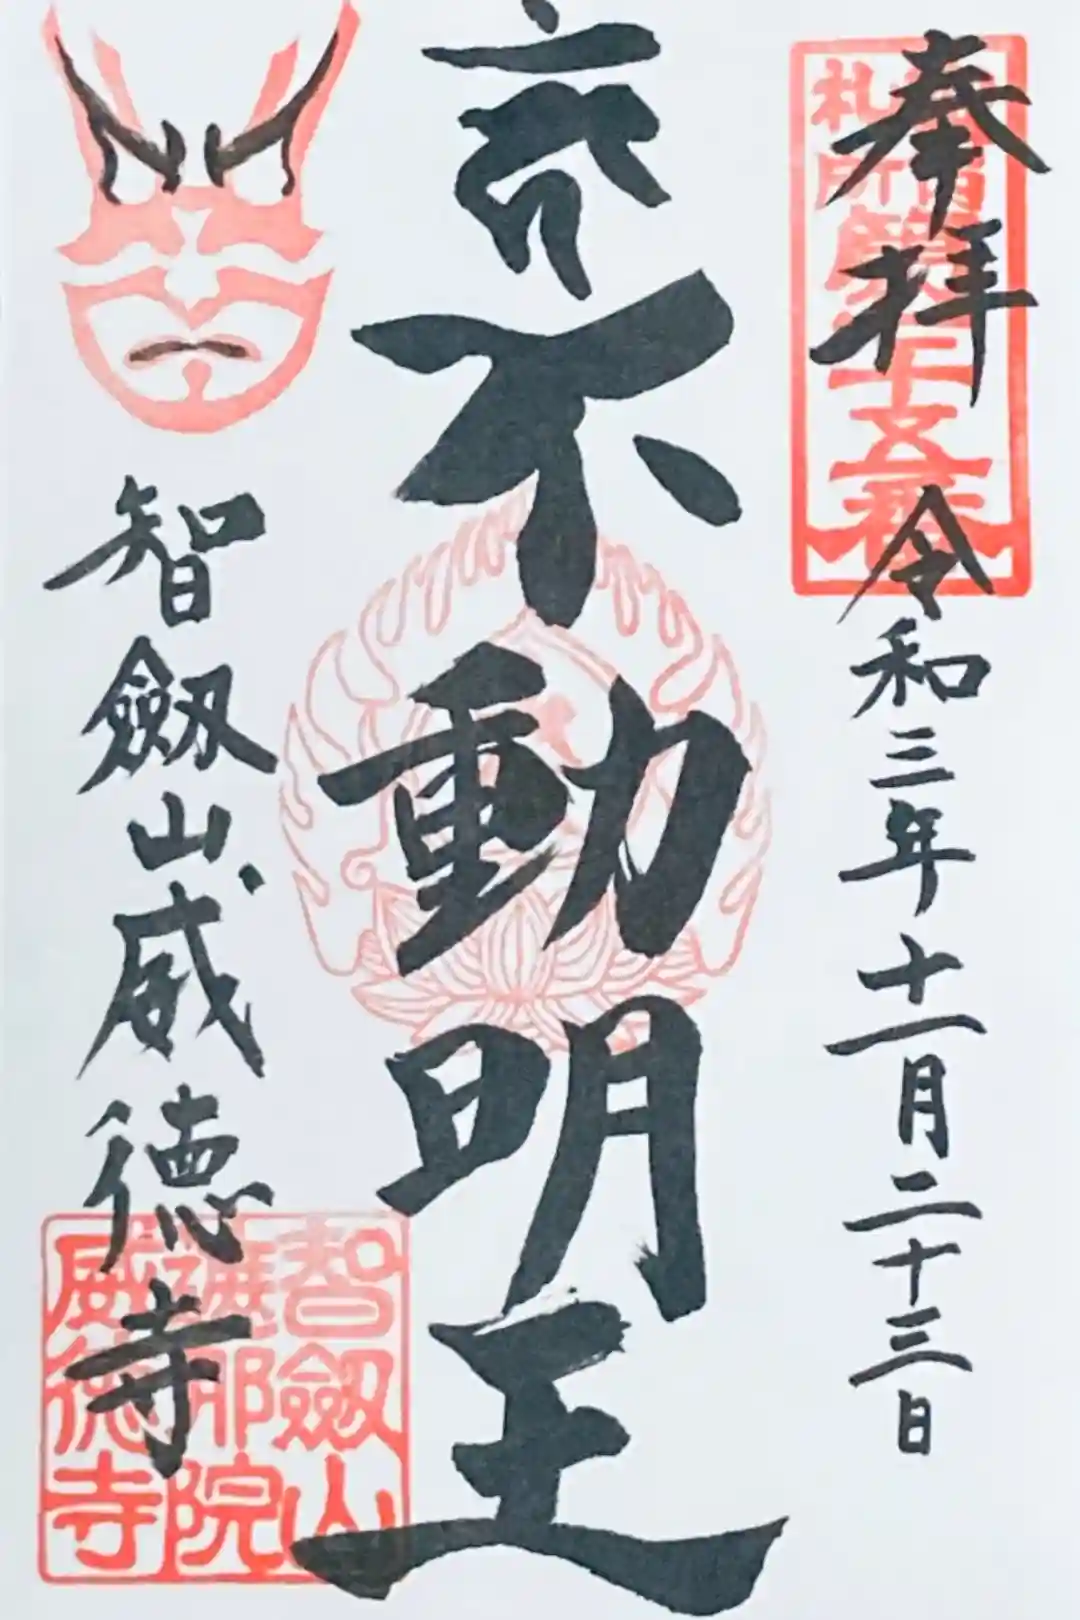 奉拝
令和三年十一月二十三日
不動明王
智劔山威徳寺
札所
十五番
智劔山
遮那院
威徳寺